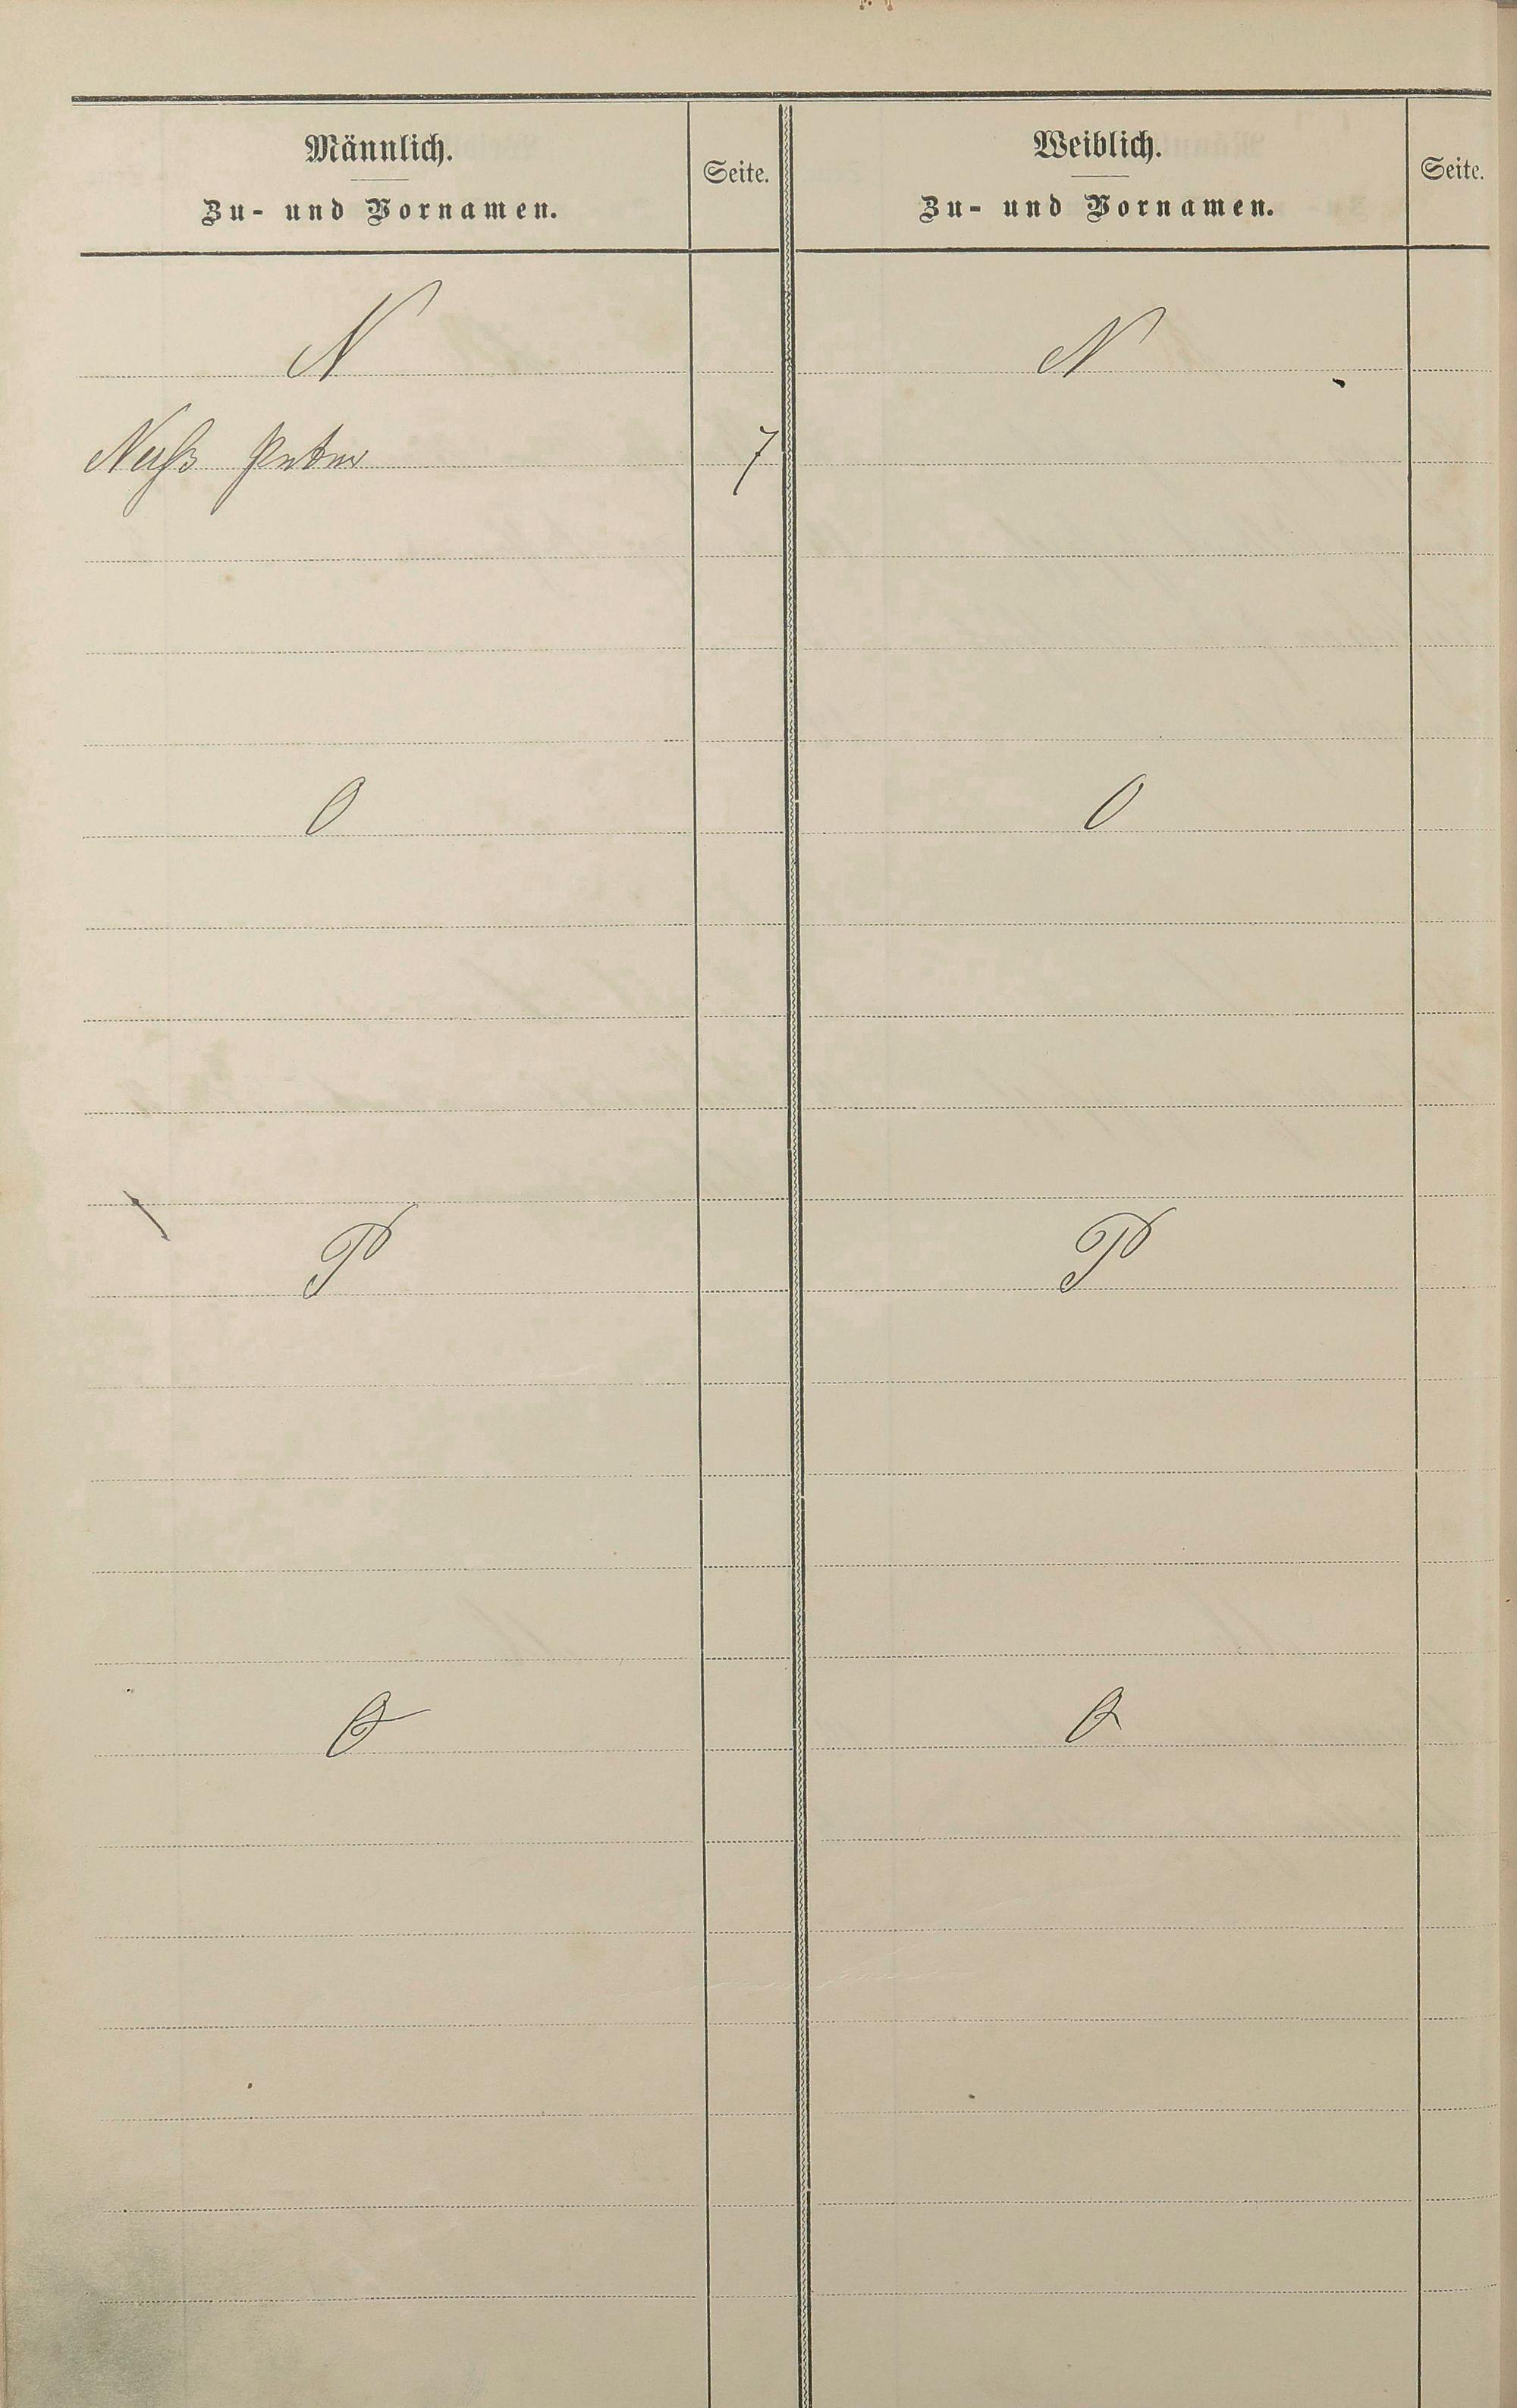 Männlich. Weiblich.
Zu- und Vornamen. Seite. Zu- und Vornamen. Seite.
N N
Neuß Peter 7
O O
P P
Q Q